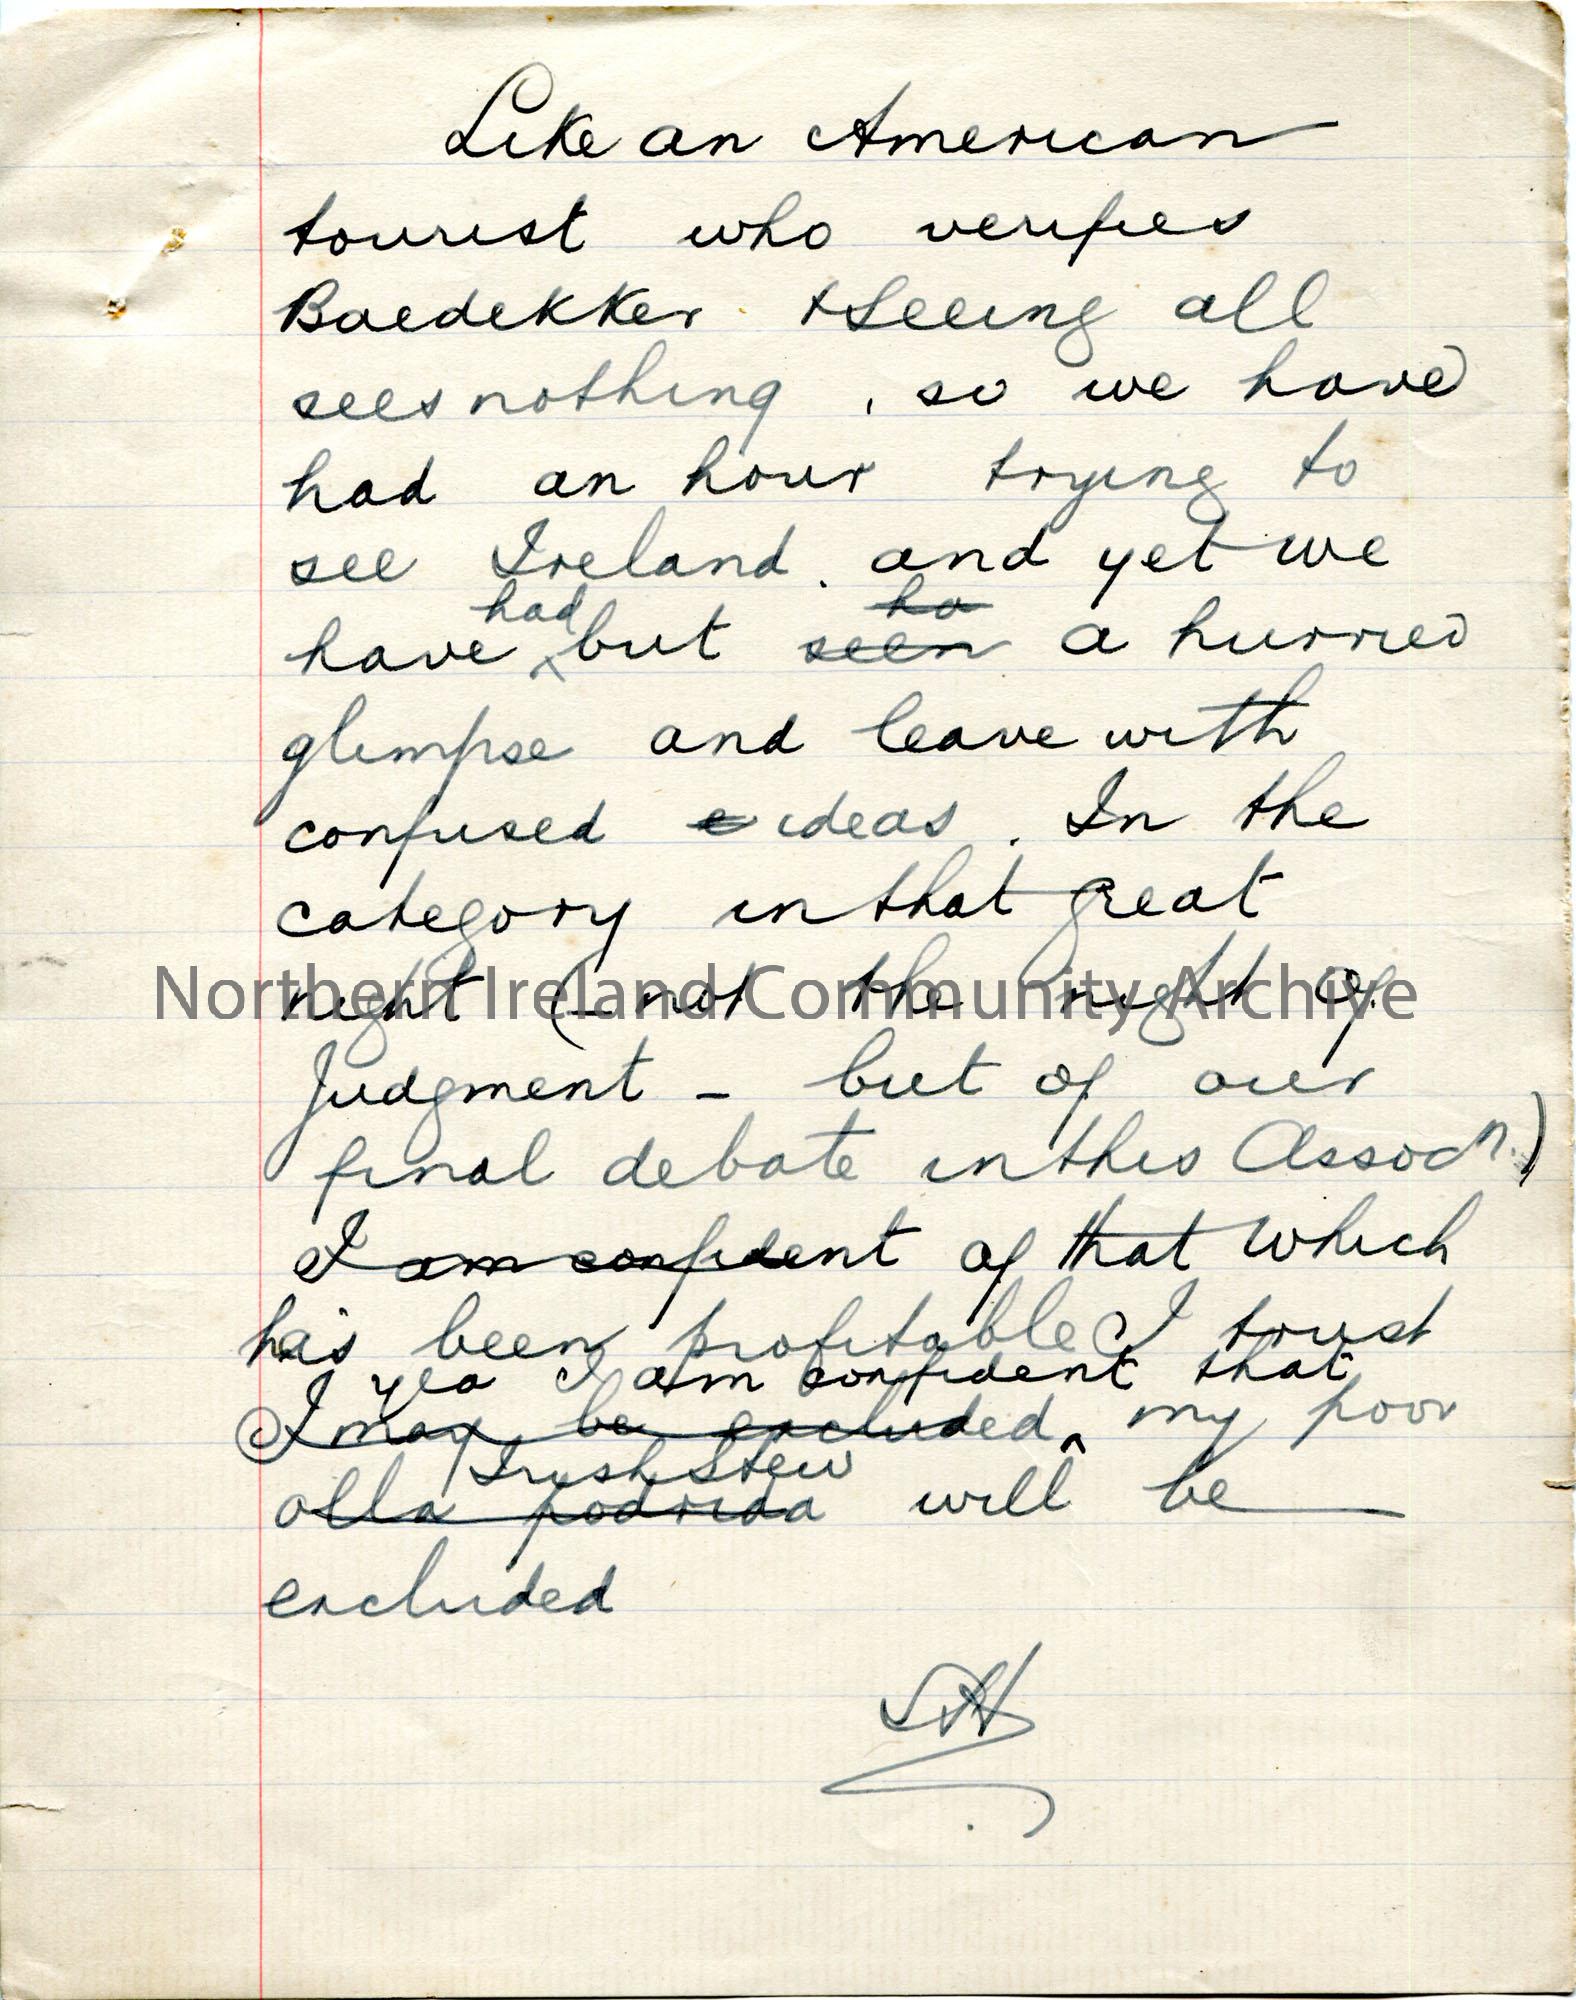 Like an American
tourist who verifies
Baedekker & seeing all
sees nothing, so we have
had an hour trying to
see Ireland. and yet we
had ho
have but seen a hurried
glimpse and leave with
confused e ideas. In the
category in that great
night (- not the night of
Northern Ireland Community Archive
Judgment - but of our
final debate in this Assocn.)
I am confident of that which
has been profitable I trust
yea I am confident that
I may be excluded ^ my poor
Irish Stew
olla podrida will be
excluded